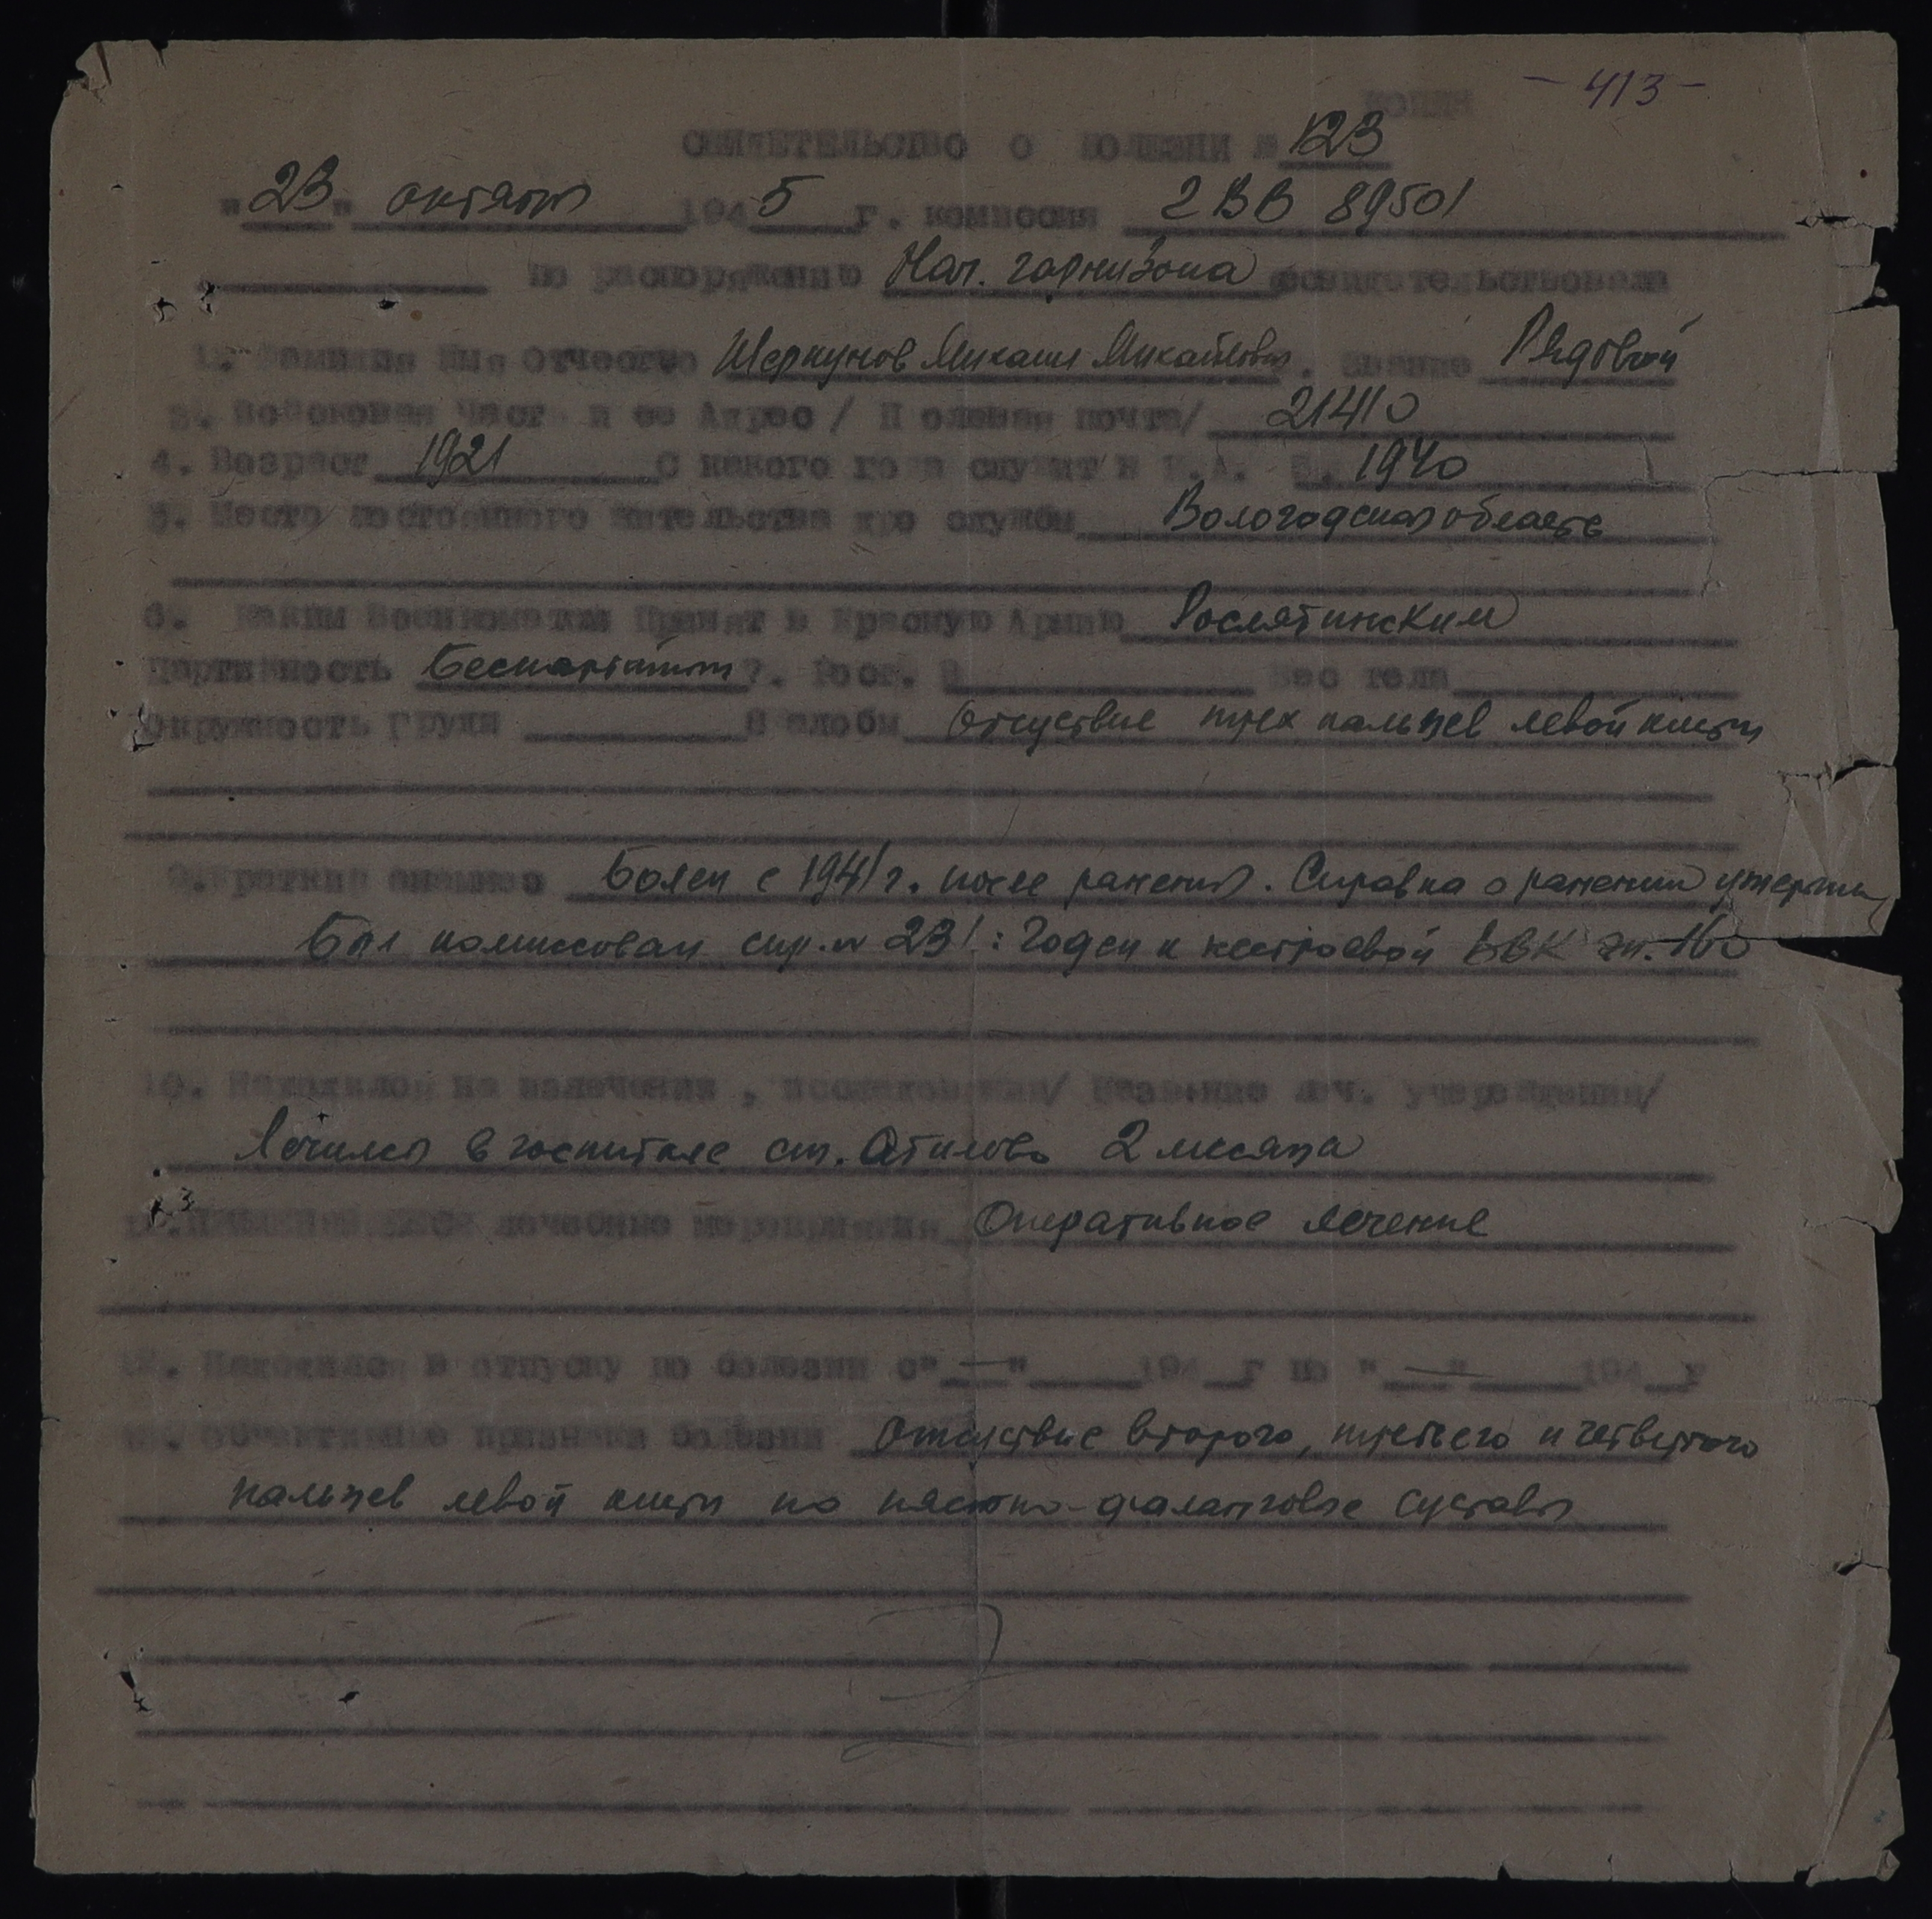 - 413 -
КОПИЯ
СВИДЕТЕЛЬСТВО О БОЛЕЗНИ № 123
"23" октября 1945 г. комиссия 2 ВВ 89501
по распоряжению Нач. гарнизона освидетельствовала
1. Фамилия Имя Отчество Шергунов Михаил Михайлович. Звание Рядовой
3. Войсковая Част и ее Адрес / Полевая почта/ 21410
4. Возраст 1921 С какого года служит в К.А. 1940
5. Место постоянного жительства до службы Вологодская область
6. Каким Военкоматом Принят в Красную Армию Рослятинским
Партийность Беспартийный 7. Рост. Вес тела
Окружность груди Жалобы Отсуствие трех пальцев левой кисти
9. Краткий анамнез Болен с 1941 г. после ранения. Справка о ранении утеряна
Был комиссован спр. № 231: Годен к нестроевой ВВК эг. 160
10. Находился на излечении, исследовании/ Название леч. учереждения/
Лечился в госпитале ст. 2 месяца
лечебные мероприятия Оперативное лечение
12. Находился в отпуску по болезни с "—" 194 г по "—" 194 г
13. Объективные признаки болезни Отсуствие второго, третьего и четвертого
пальцев левой кисти по пястно-фаланговые суставы